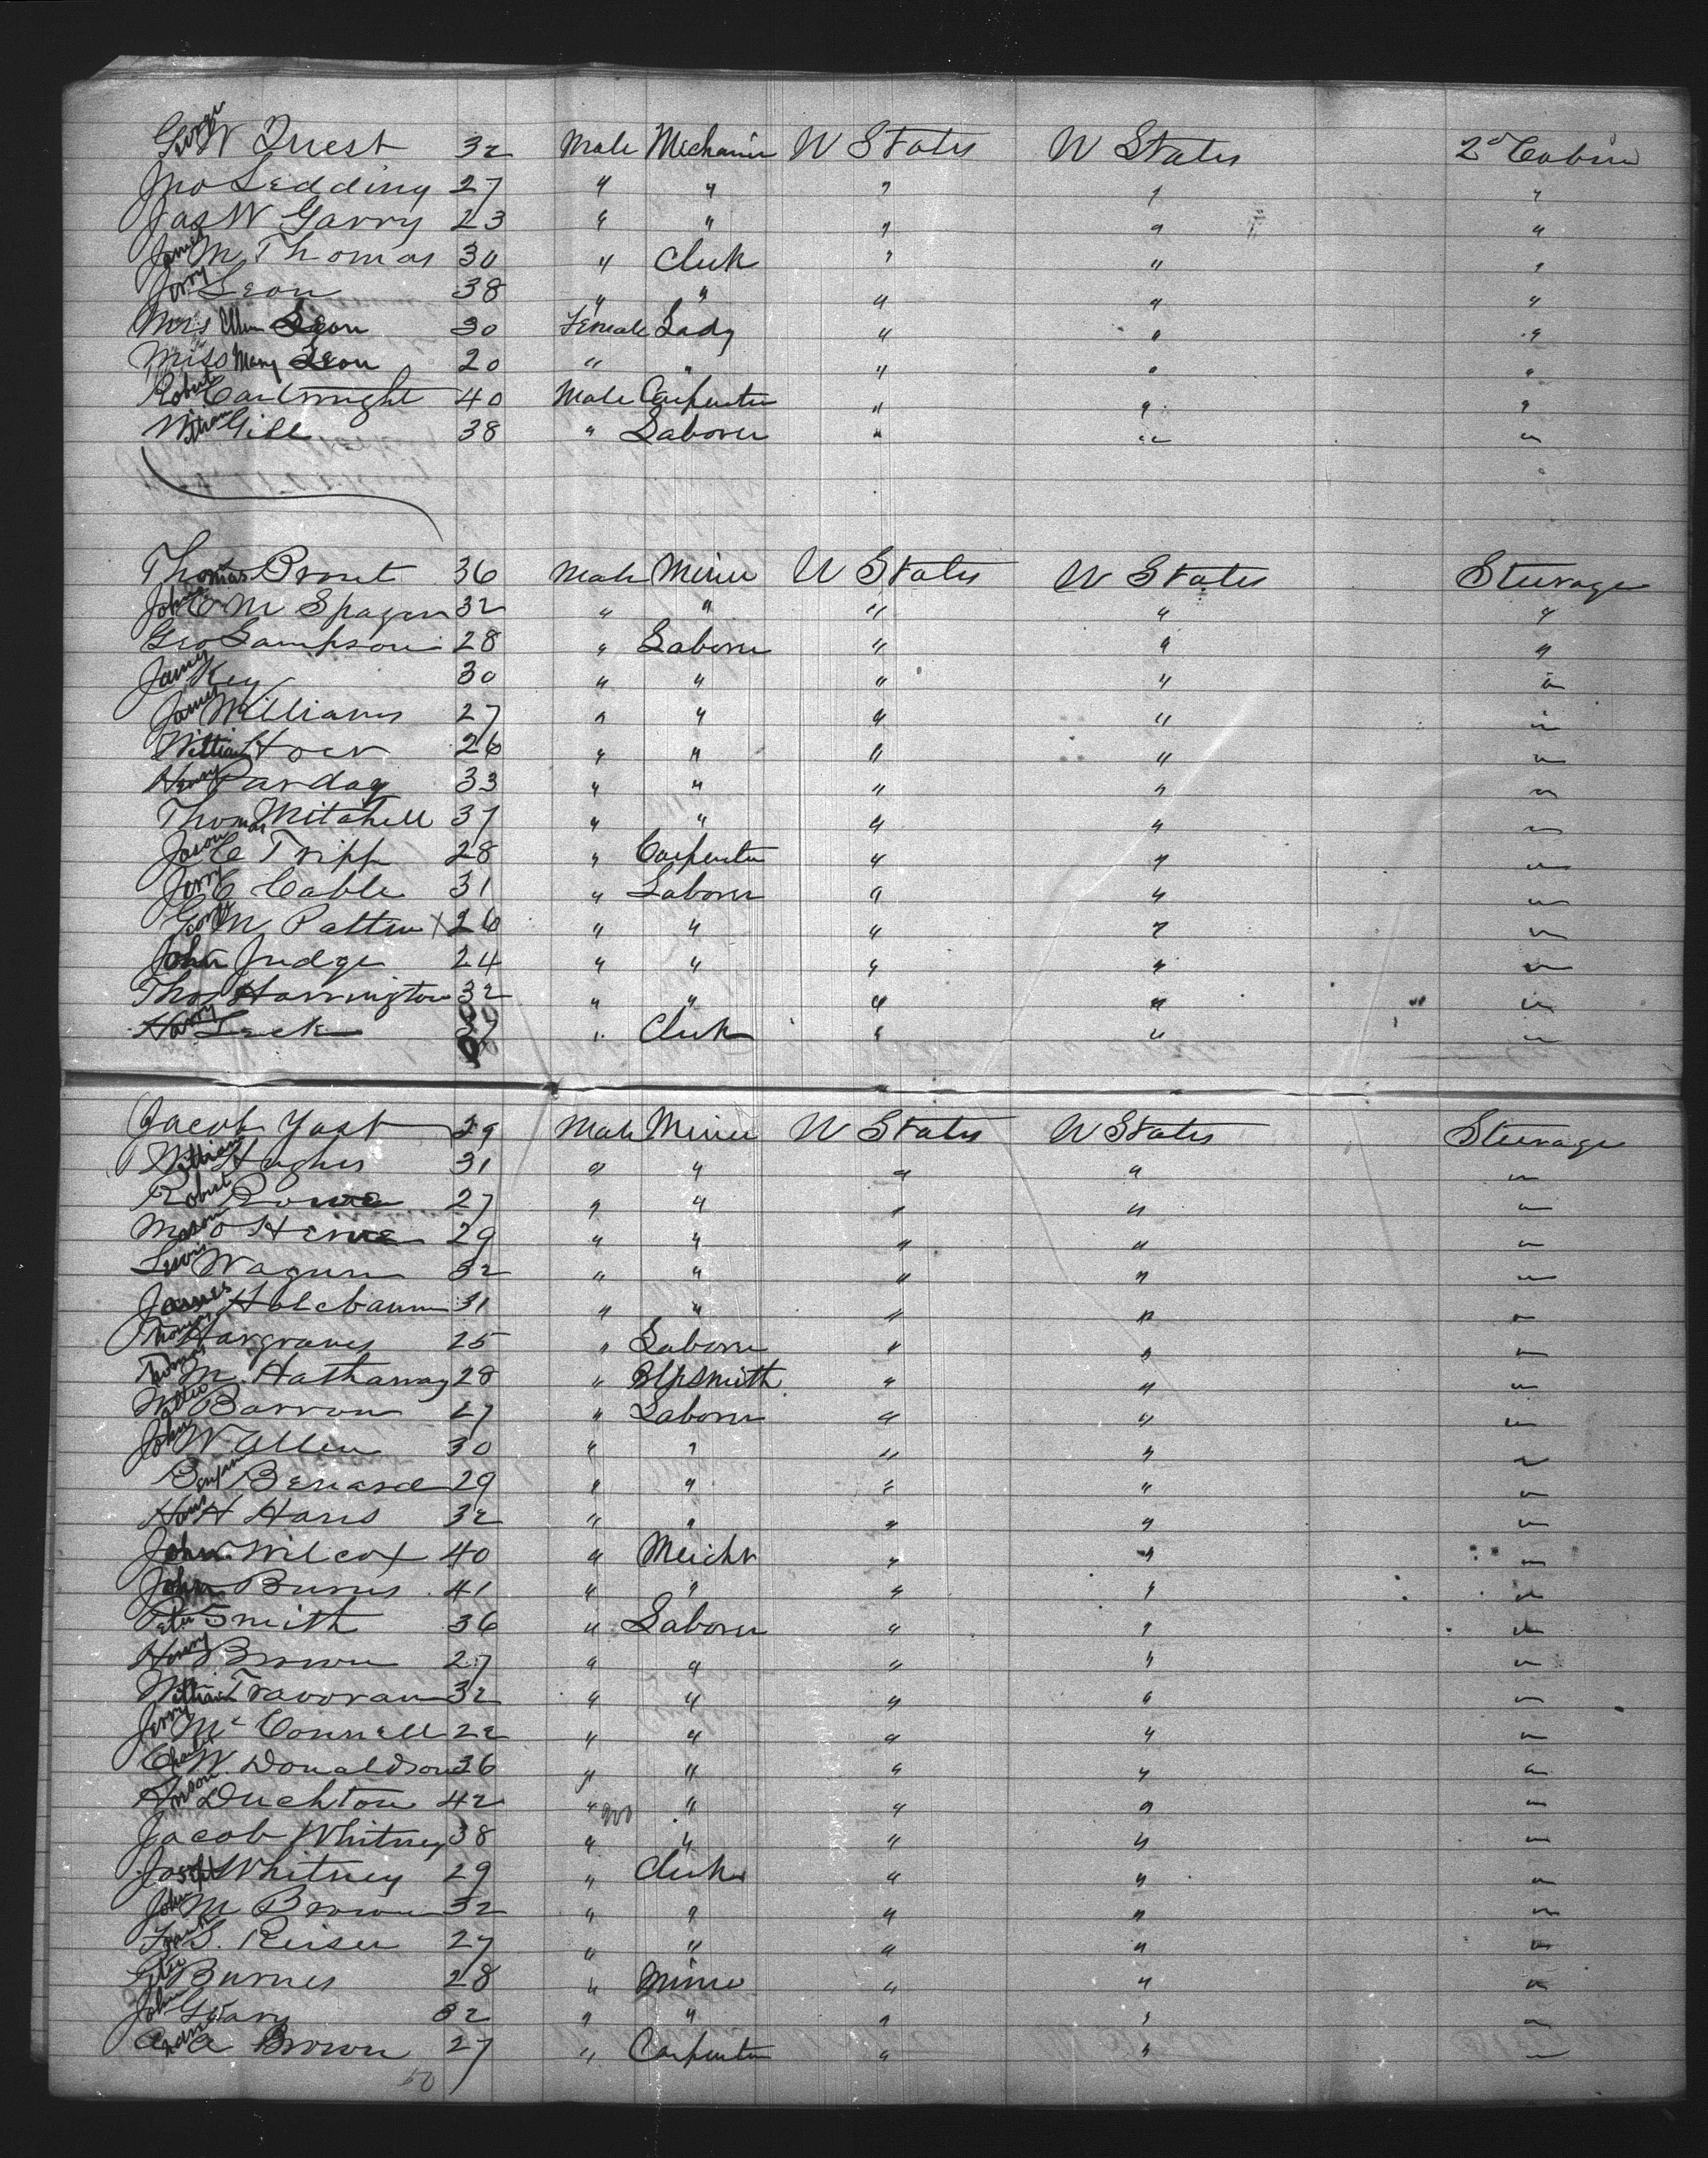 George W Quest 32 Male Mechanic U States U States 2d Cabin
Jno Ledding 27 " " " " "
Jas W Garry 23 " " " " "
James M Thomas 30 " Clerk " " "
Jerry Leon 38 " " " " "
Mrs Ellen Leon 30 Female Lady " " "
Miss Mary Leon 20 " " " " "
Robert Cartwright 40 Male Carpenter " " "
William Gill 38 " Laborer " " "
Thomas Prout 36 Male Miner U States U States Steerage
John C M Spagen 32 " " " " "
Geo Sampson 28 " Laborer " " "
Key 30 " " " " "
James Williams 27 " " " " "
William Hock 26 " " " " "
Henry Parday 33 " " " " "
Thomas Mitchell 37 " " " " "
Jason C Tripp 28 " Carpenter " " "
Jerry C Cable 31 " Laborer " " "
George M Patten X 26 " " " " "
John Judge 24 " " " " "
Thos Harrington 32 " " " " "
Harry Leck " Clerk " " "
Jacob Yost 29 Male Miner U States U States Steerage
William Hughes 31 " " " " "
Robert Rowe 27 " " " " "
Mason O Hine 29 " " " " "
Lewis Wagum 32 " " " " "
James Holebaum 31 " " " " "
Thomas Hargraves 25 " Laborer " " "
Thomas M. Hathaway 28 " Blksmith " " "
Barron 27 " Laborer " " "
John W Allen 30 " " " " "
Benjamin Benard 29 " " " " "
Hans H Hans 32 " " " " "
John Wilcox 40 " Mercht " " "
John Burns 41 " " " " "
Peter Smith 36 " Laborer " " "
Henry Brown 27 " " " " "
William Travoran 32 " " " " "
Jerry McConnell 22 " " " " "
Charles W. Donaldson 36 " " " " "
Duchton 42 " " " " "
Jacob Whitney 38 " " " " "
Joseph Whitney 29 " Clerk " " "
John M Brown 32 " " " " "
Frank S. Reiser 27 " " " " "
Peter Burnes 28 " Miner " " "
John Geary 32 " " " " "
A Brown 27 " Carpenter " " "
50